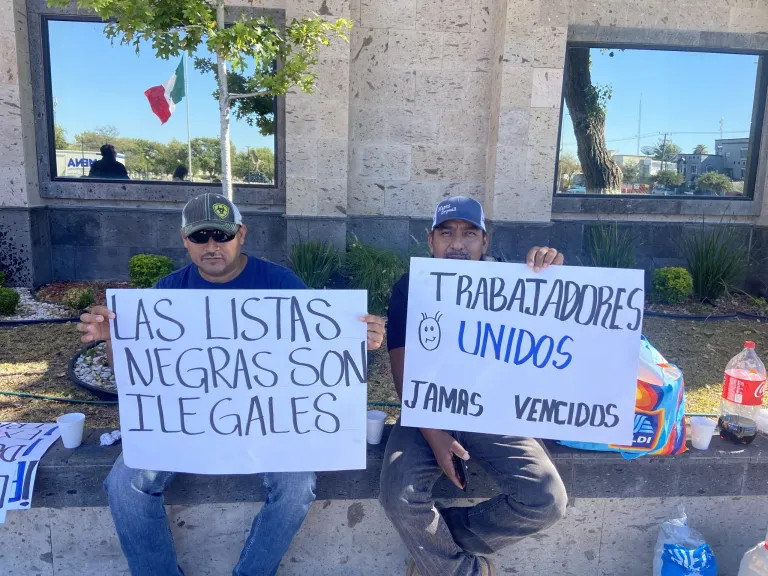 LAS LISTAS
NEGRAS SON
ILEGALES
TRABAJADORES
UNIDOS
JAMAS VENCIDOS
ALDI
Coca-Cola